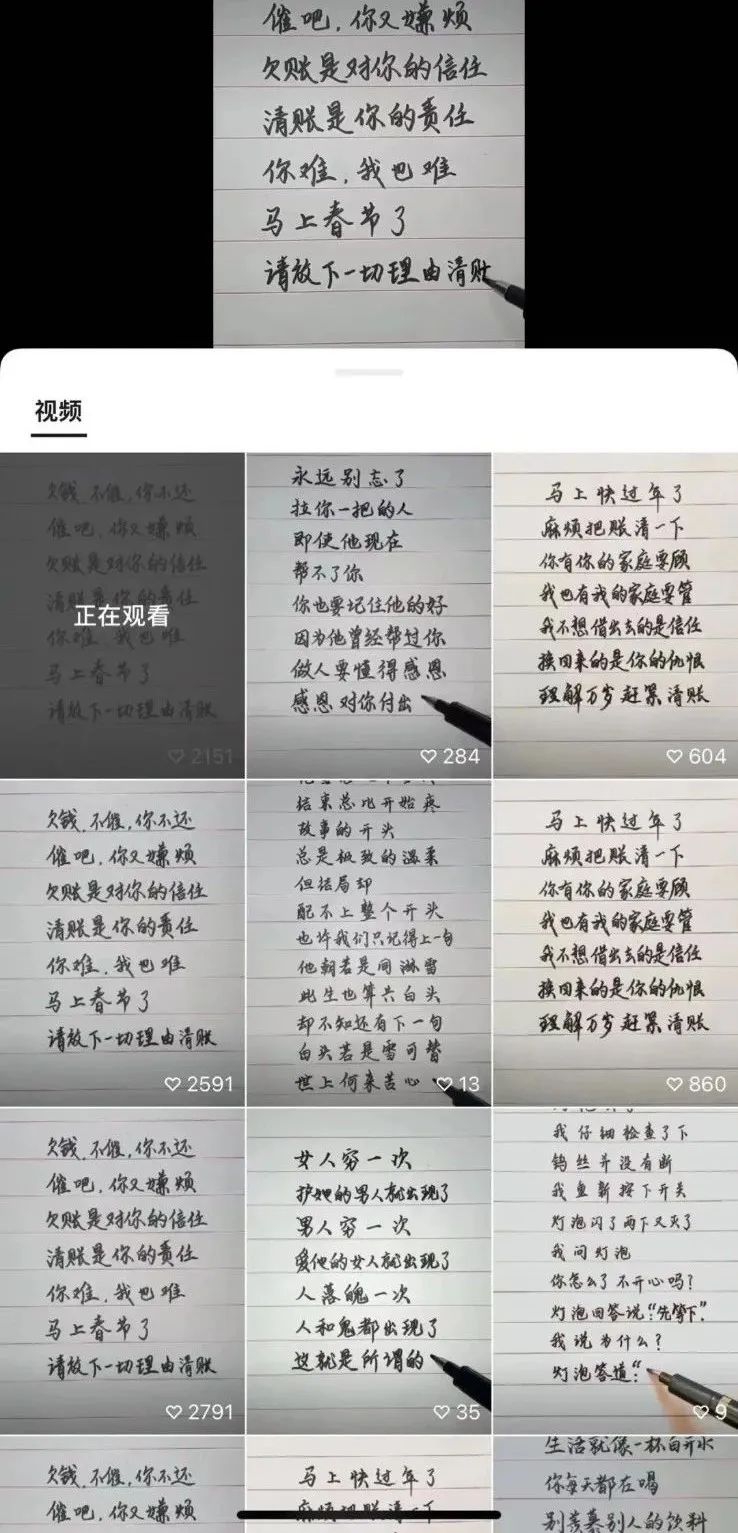 催吧，你又嫌烦
欠账是对你的信任
清账是你的责任
你难，我也难
马上春节了
请放下一切理由清账
视频
欠钱，不催，你不还
催吧，你又嫌烦
欠账是对你的信任
清账是你的责任
正在观看
你难，我也难
马上春节了
请放下一切理由清账
2151
永远别忘了
拉你一把的人
即使他现在
帮不了你
你也要记住他的好
因为他曾经帮过你
做人要懂得感恩
感恩对你付出
284
马上快过年了
麻烦把账清一下
你有你的家庭要顾
我也有我的家庭要管
我不想借出去的是信任
换回来的是你的仇恨
理解万岁赶紧清账
604
欠钱，不催，你不还
催吧，你又嫌烦
欠账是对你的信任
清账是你的责任
你难，我也难
马上春节了
请放下一切理由清账
2591
结束总比开始疼
故事的开头
总是极致的温柔
但结局却
配不上整个开头
也许我们只记得上一句
他朝若是同淋雪
此生也算共白头
却不知还有下一句
白头若是雪可替
世上何来苦心
13
马上快过年了
麻烦把账清一下
你有你的家庭要顾
我也有我的家庭要管
我不想借出去的是信任
换回来的是你的仇恨
理解万岁赶紧清账
860
欠钱，不催，你不还
催吧，你又嫌烦
欠账是对你的信任
清账是你的责任
你难，我也难
马上春节了
请放下一切理由清账
2791
女人穷一次
护她的男人就出现了
男人穷一次
爱他的女人就出现了
人落魄一次
人和鬼都出现了
这就是所谓的
35
我仔细检查了下
钨丝并没有断
我重新按下开关
灯泡闪了两下又灭了
我问灯泡
你怎么了不开心吗？
灯泡回答说“先等下”
我说为什么？
灯泡答道：“
9
欠钱，不催，你不还
催吧，你又嫌烦
马上快过年了
麻烦把账清一下
生活就像一杯白开水
你每天都在喝
别羡慕别人的饮料